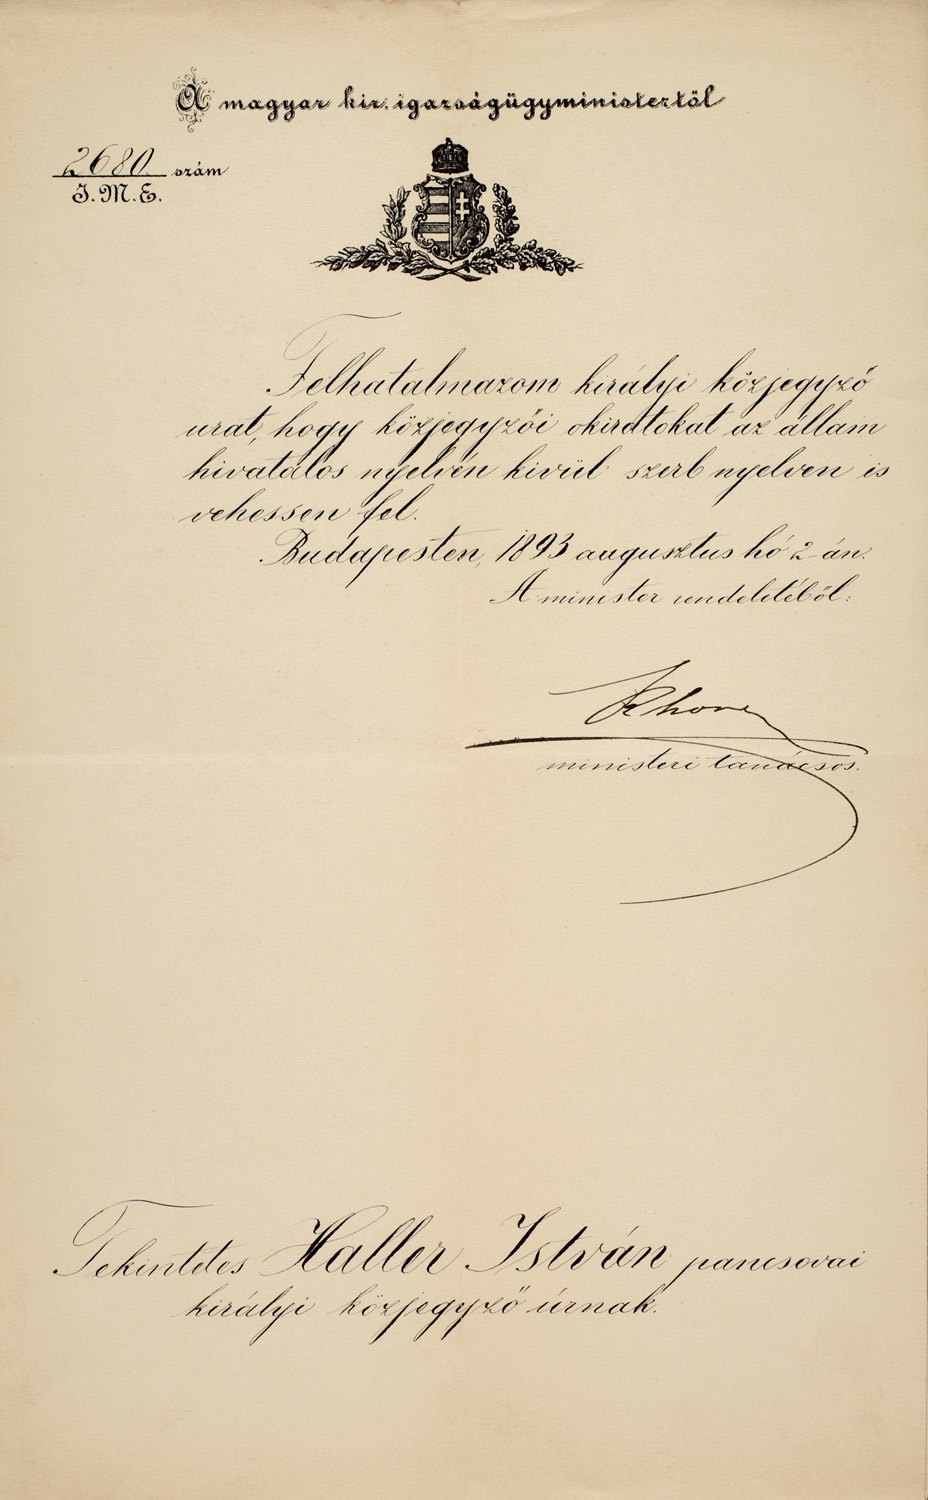 A magyar kir. igazságügyministertől
2680. szám
I.M.E.
Felhatalmazom királyi közjegyző
urat, hogy közjegyzői okiratokat az állam
hivatalos nyelvén kivül szerb nyelven is
vehessen fel.
Budapesten, 1893 augusztus hó 2-án.
A minister rendeletéből:
ministeri tanácsos.
Tekintetes Haller István pancsovai
királyi közjegyző úrnak.